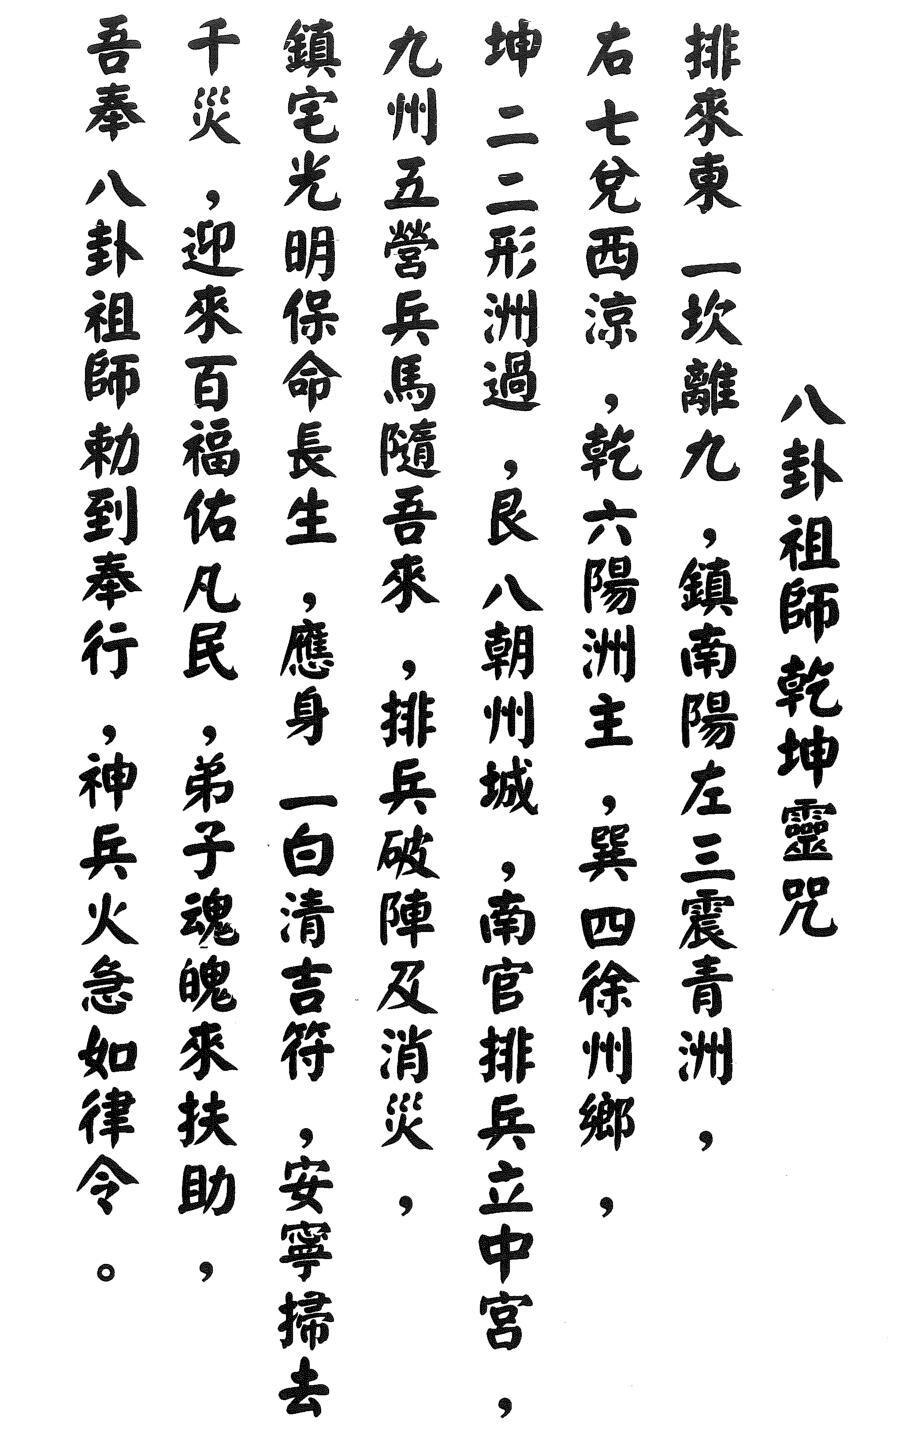 八卦祖師乾坤靈咒
排來東一坎離九,鎮南陽左三震青洲,
右七兌西涼,乾六陽洲主,巽四徐州鄉,
坤二二形洲過,艮八朝州城,南官排兵立中宮,
九州五營兵馬隨吾來,排兵破陣及消災,
鎮宅光明保命長生,應身一白清吉符,安寧掃去
千災,迎來百福佑凡民,弟子魂魄來扶助,
吾奉八卦祖師勅到奉行,神兵火急如律令。